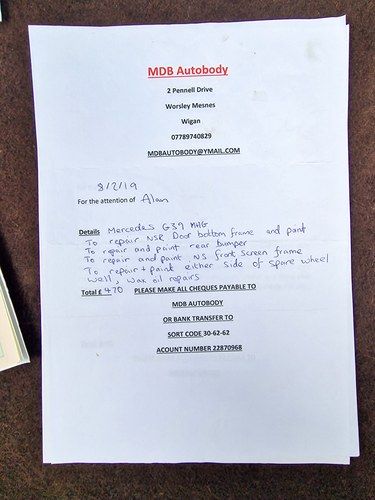 MDB Autobody
2 Pennell Drive
Worsley Mesnes
Wigan
07789740829
MDBAUTOBODY@YMAIL.COM
8/2/19
For the attention of Alan
Details Mercedes G39 MHG
To repair NSR Door bottom frame and paint
To repair and paint rear bumper
To repair and paint NS front Screen frame
To repair + paint either side of spare wheel
well, wax oil repairs
Total £ 470 PLEASE MAKE ALL CHEQUES PAYABLE TO
MDB AUTOBODY
OR BANK TRANSFER TO
SORT CODE 30-62-62
ACOUNT NUMBER 22870968